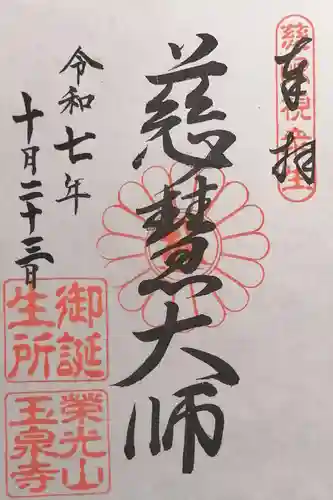 奉拝
慈眼視衆生
慈慧大師
令和七年
十月二十三日
御誕生所
榮光山
玉泉寺